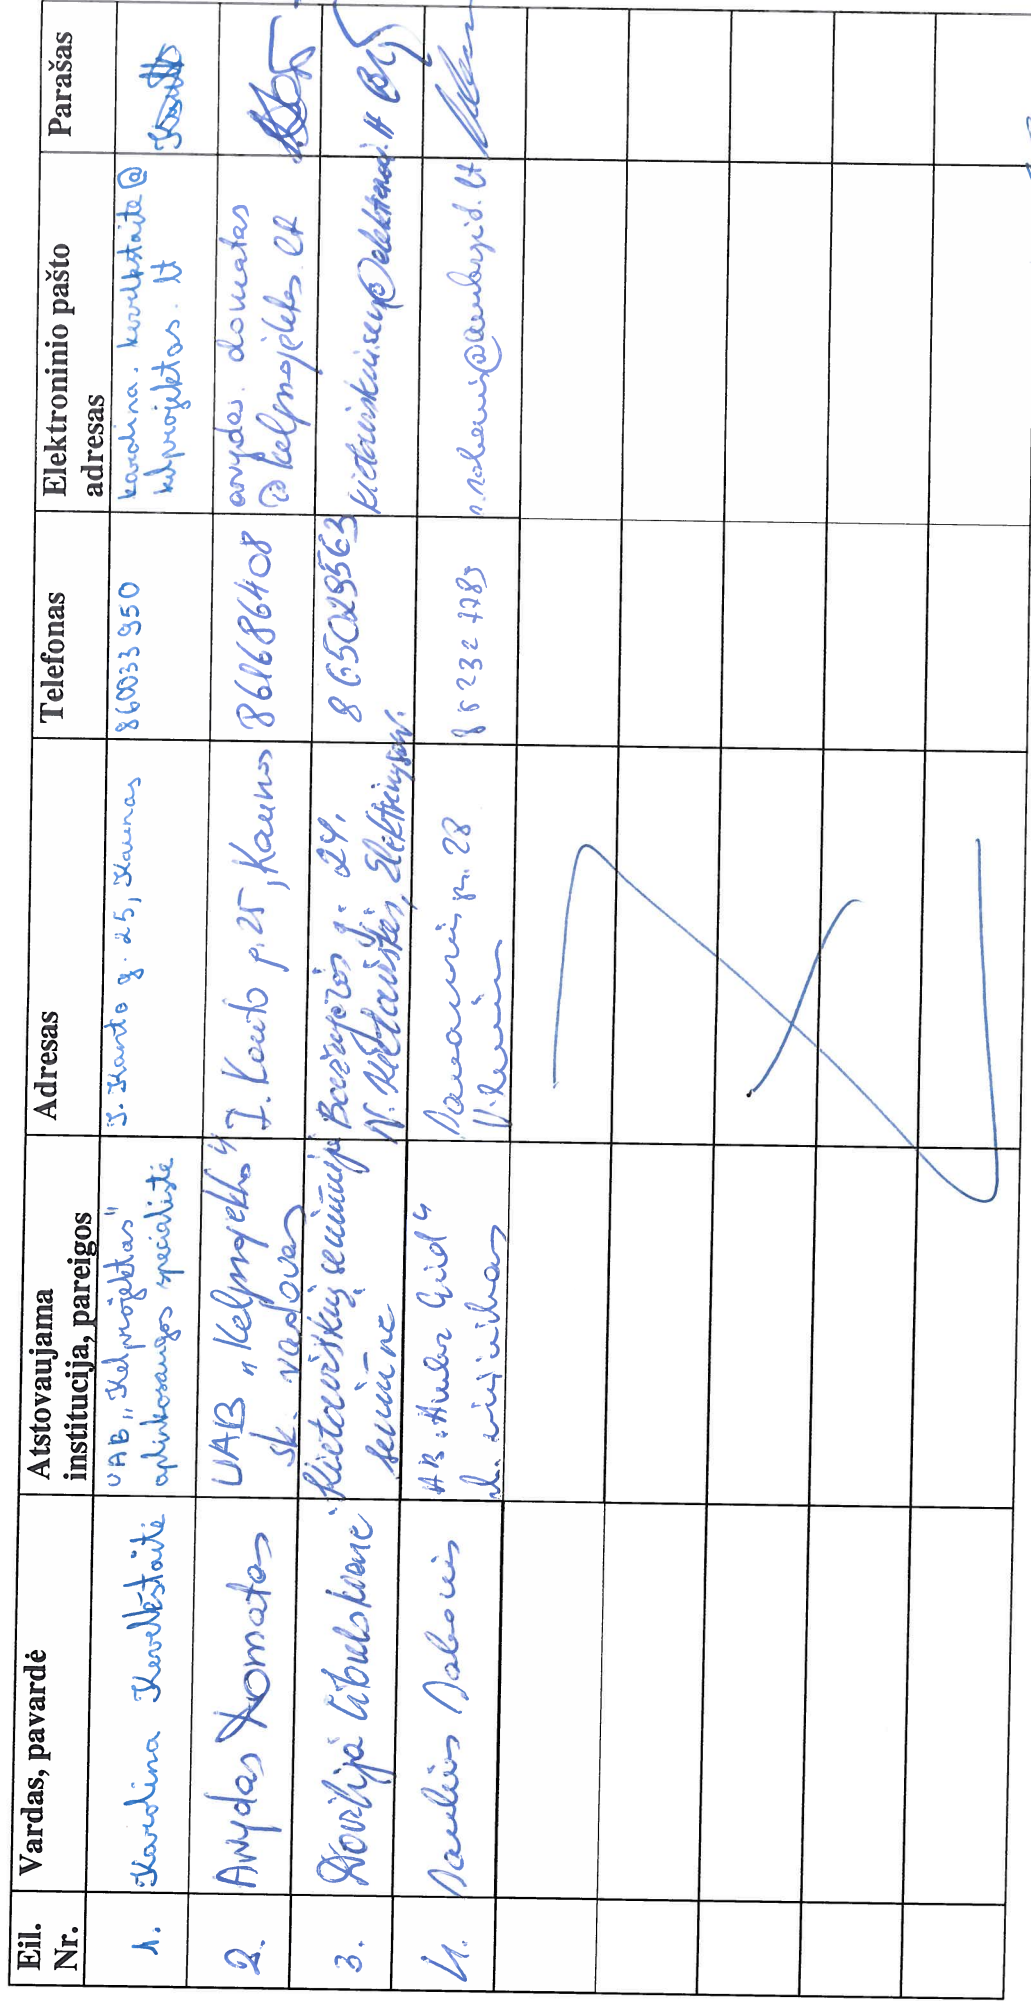 Eil. Nr. Vardas, pavardė Atstovaujama institucija, pareigos Adresas Telefonas Elektroninio pašto adresas Parašas
1. Karolina Kevelkštaitė UAB „Kelprojektas" aplinkosaugos specialistė I. Kanto g. 25, Kaunas 860033950 karolina.kevelkstaite@kelprojektas.lt
2. Arvydas Domatas UAB „Kelprojektas" sk. vadovas I. Kanto g. 25, Kaunas 861686408 arvydas.domatas@kelprojektas.lt
3. Dovilija Cibulskienė Kietaviškių seniūnija seniūnė Bažnyčios g. 24, N. Kietaviškės, Elektrėnų sav. 865029563
4. Saulius UAB „Amber Grid" Savanorių pr. 28 Vilnius 8 5 232 7789